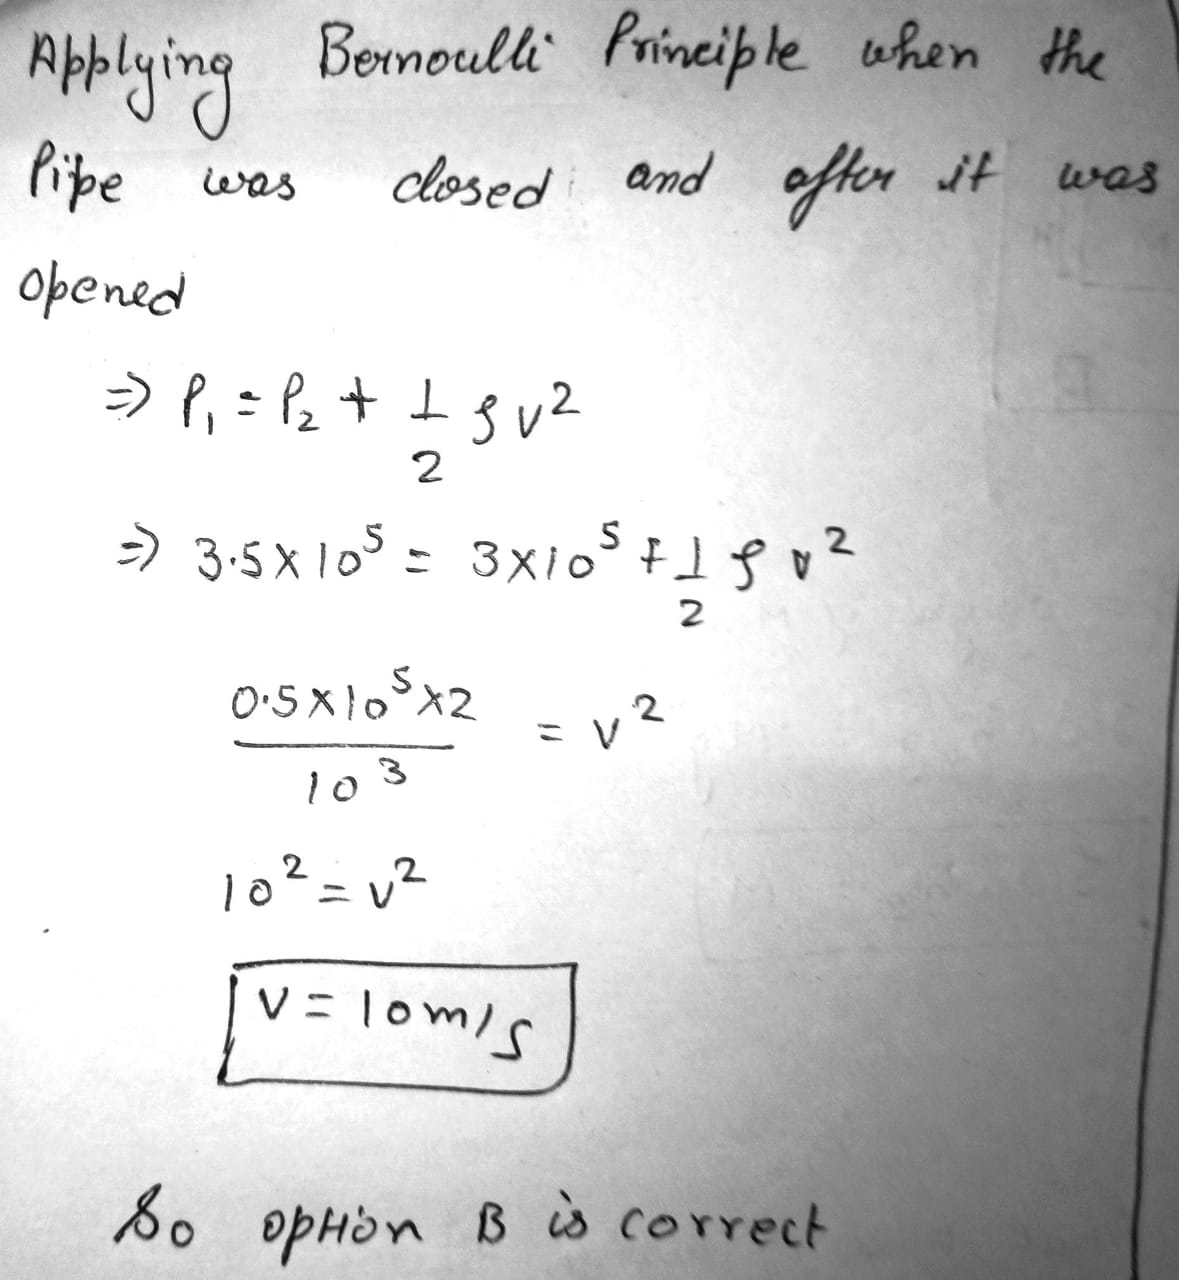 Applying Bernoulli Principle when the
Pipe was closed and after it was
opened
⇒ P₁ = P₂ + 1/2 ρv²
⇒ 3.5×10⁵ = 3×10⁵ + 1/2 ρv²
0.5×10⁵×2 / 10³ = v²
10² = v²
V = 10m/s
So option B is correct